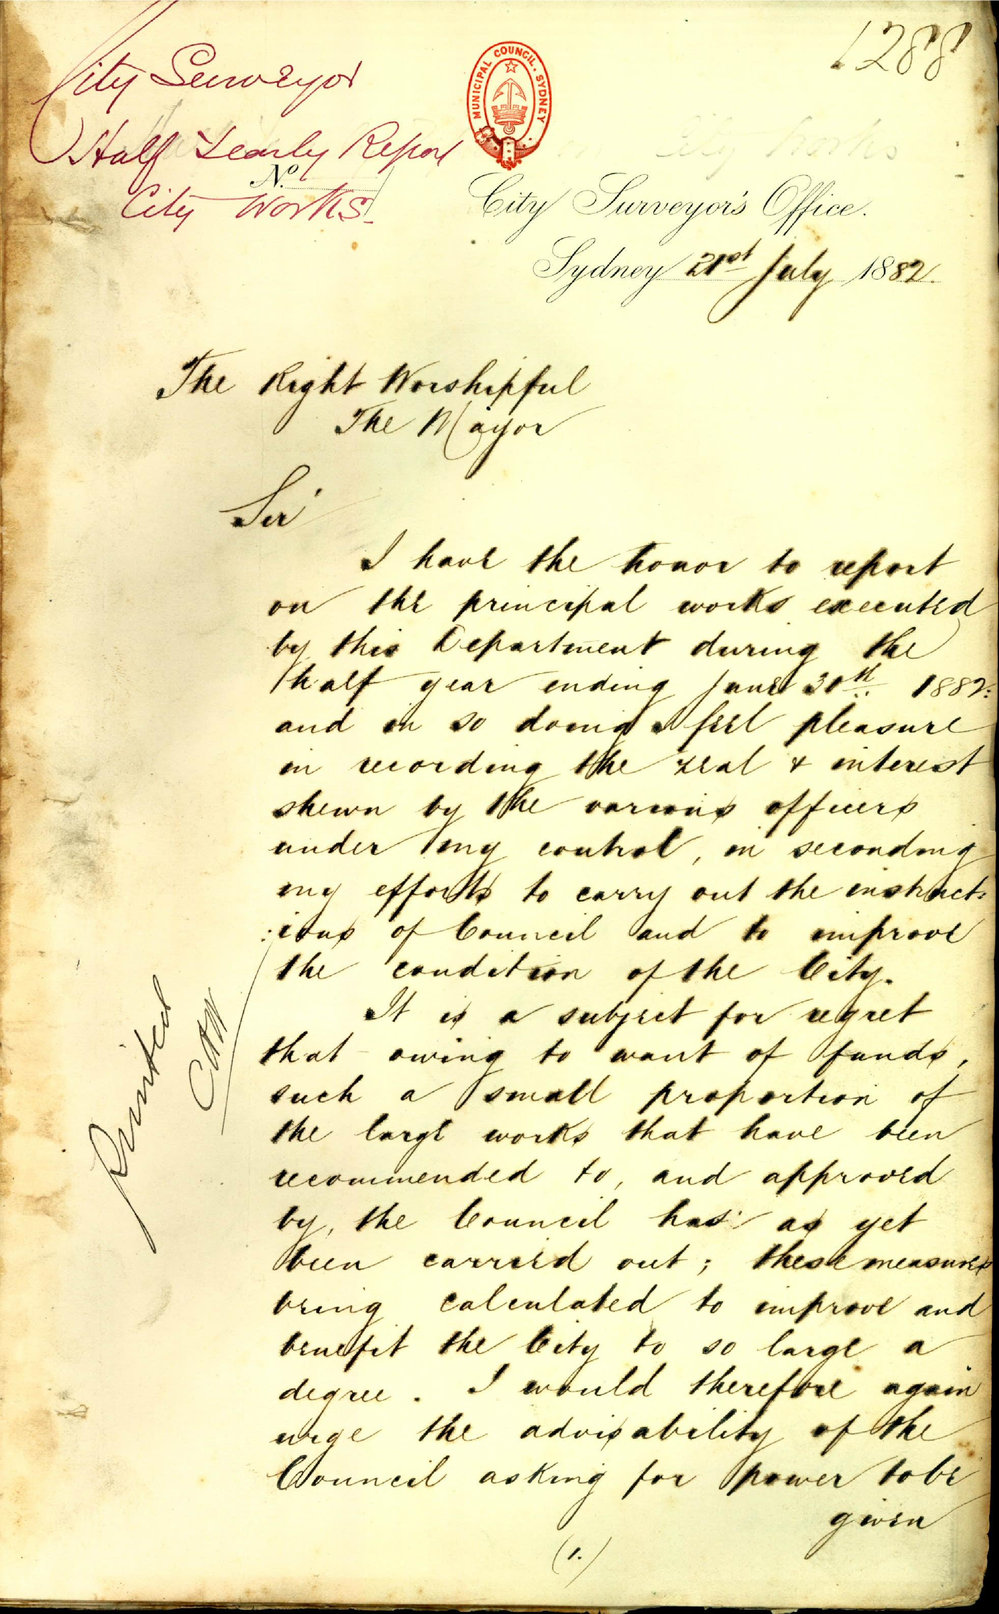 1288
City Surveyor
Half Yearly Report
City Works.
MUNICIPAL COUNCIL. SYDNEY
No.
City Surveyor's Office.
Sydney 21st July 1882.
The Right Worshipful
The Mayor
Sir
I have the honor to report
on the principal works executed
by this Department during the
half year ending June 30th 1882:
and in so doing I feel pleasure
in recording the zeal & interest
shewn by the various officers
under my control, in seconding
my efforts to carry out the instruct:
:ions of Council and to improve
the condition of the City.
It is a subject for regret
that owing to want of funds,
such a small proportion of
the large works that have been
recommended to, and approved
by, the Council has as yet
been carried out; these measures
bring calculated to improve and
benefit the City to so large a
degree. I would therefore again
urge the advisability of the
Council asking for power to be
given
(1.)
Printed